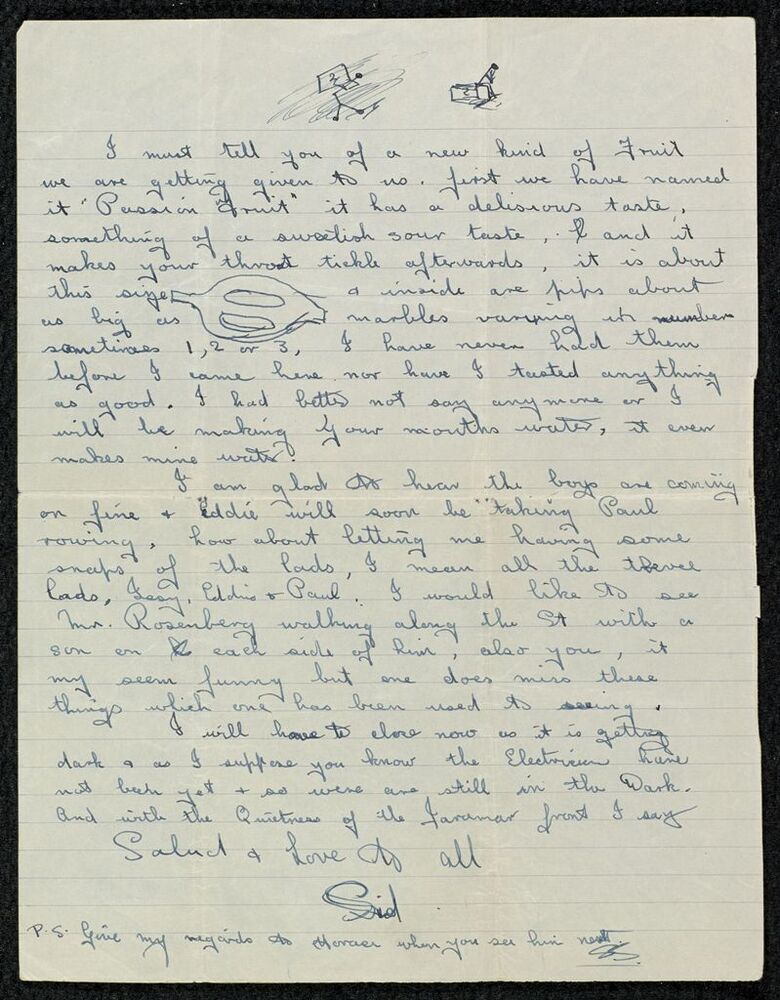 2 2
I must tell you of a new kind of Fruit
we are getting given to us. first we have named
it "Passion Fruit" it has a delisious taste,
something of a sweetish sour taste, & and it
makes your throat tickle afterwards, it is about
this size & inside are pips about
as big as marbles varying in number
sometimes 1, 2 or 3, I have never had them
before I came here nor have I tasted anything
as good. I had better not say anymore or I
will be making your mouths water, it even
makes mine water.
I am glad to hear the boys are coming
on fine & Eddie will soon be "taking Paul
rowing, how about letting me having some
snaps of the lads, I mean all the three
lads, Issy, Eddie & Paul. I would like to see
Mr. Rosenberg walking along the St with a
son on each side of him, also you, it
my seem funny but one does miss these
things which one has been used to seeing.
I will have to close now as it is getting
dark & as I suppose you know the Electricien have
not been yet & so were are still in the Dark.
And with the Quietness of the Jaramar front I say
Salud & Love to all
Sid
P.S. Give my regards to Horace when you see him next.